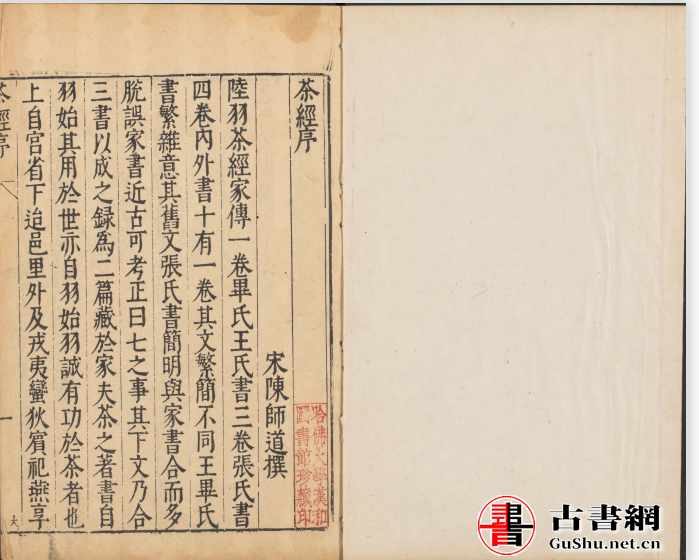 茶經序
宋陳師道撰
陸羽茶經家傳一卷畢氏王氏書三卷張氏書
四卷內外書十有一卷其文繁簡不同王畢氏
書繁雜意其舊文張氏書簡明與家書合而多
脫誤家書近古可考正曰七之事其下文乃合
三書以成之録為二篇藏於家夫茶之著書自
羽始其用於世亦自羽始羽誠有功於茶者也
上自宮省下迨邑里外及戎夷蠻狄賓祀燕享
茶經序
一
哈佛大學漢和
圖書館珍藏印
書
古書網
GuShu.net.cn